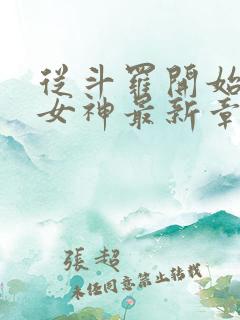 從斗羅開始
女神最新章
張超
未經同意禁止轉載